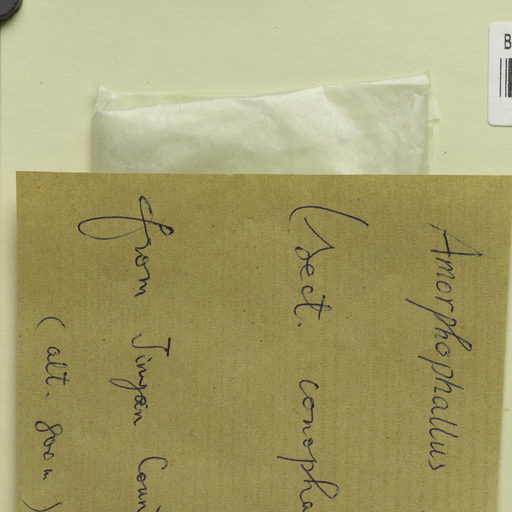 Amorphophallus
(sect. conopha
from Jinyan Coun
(alt. 800 m)
B